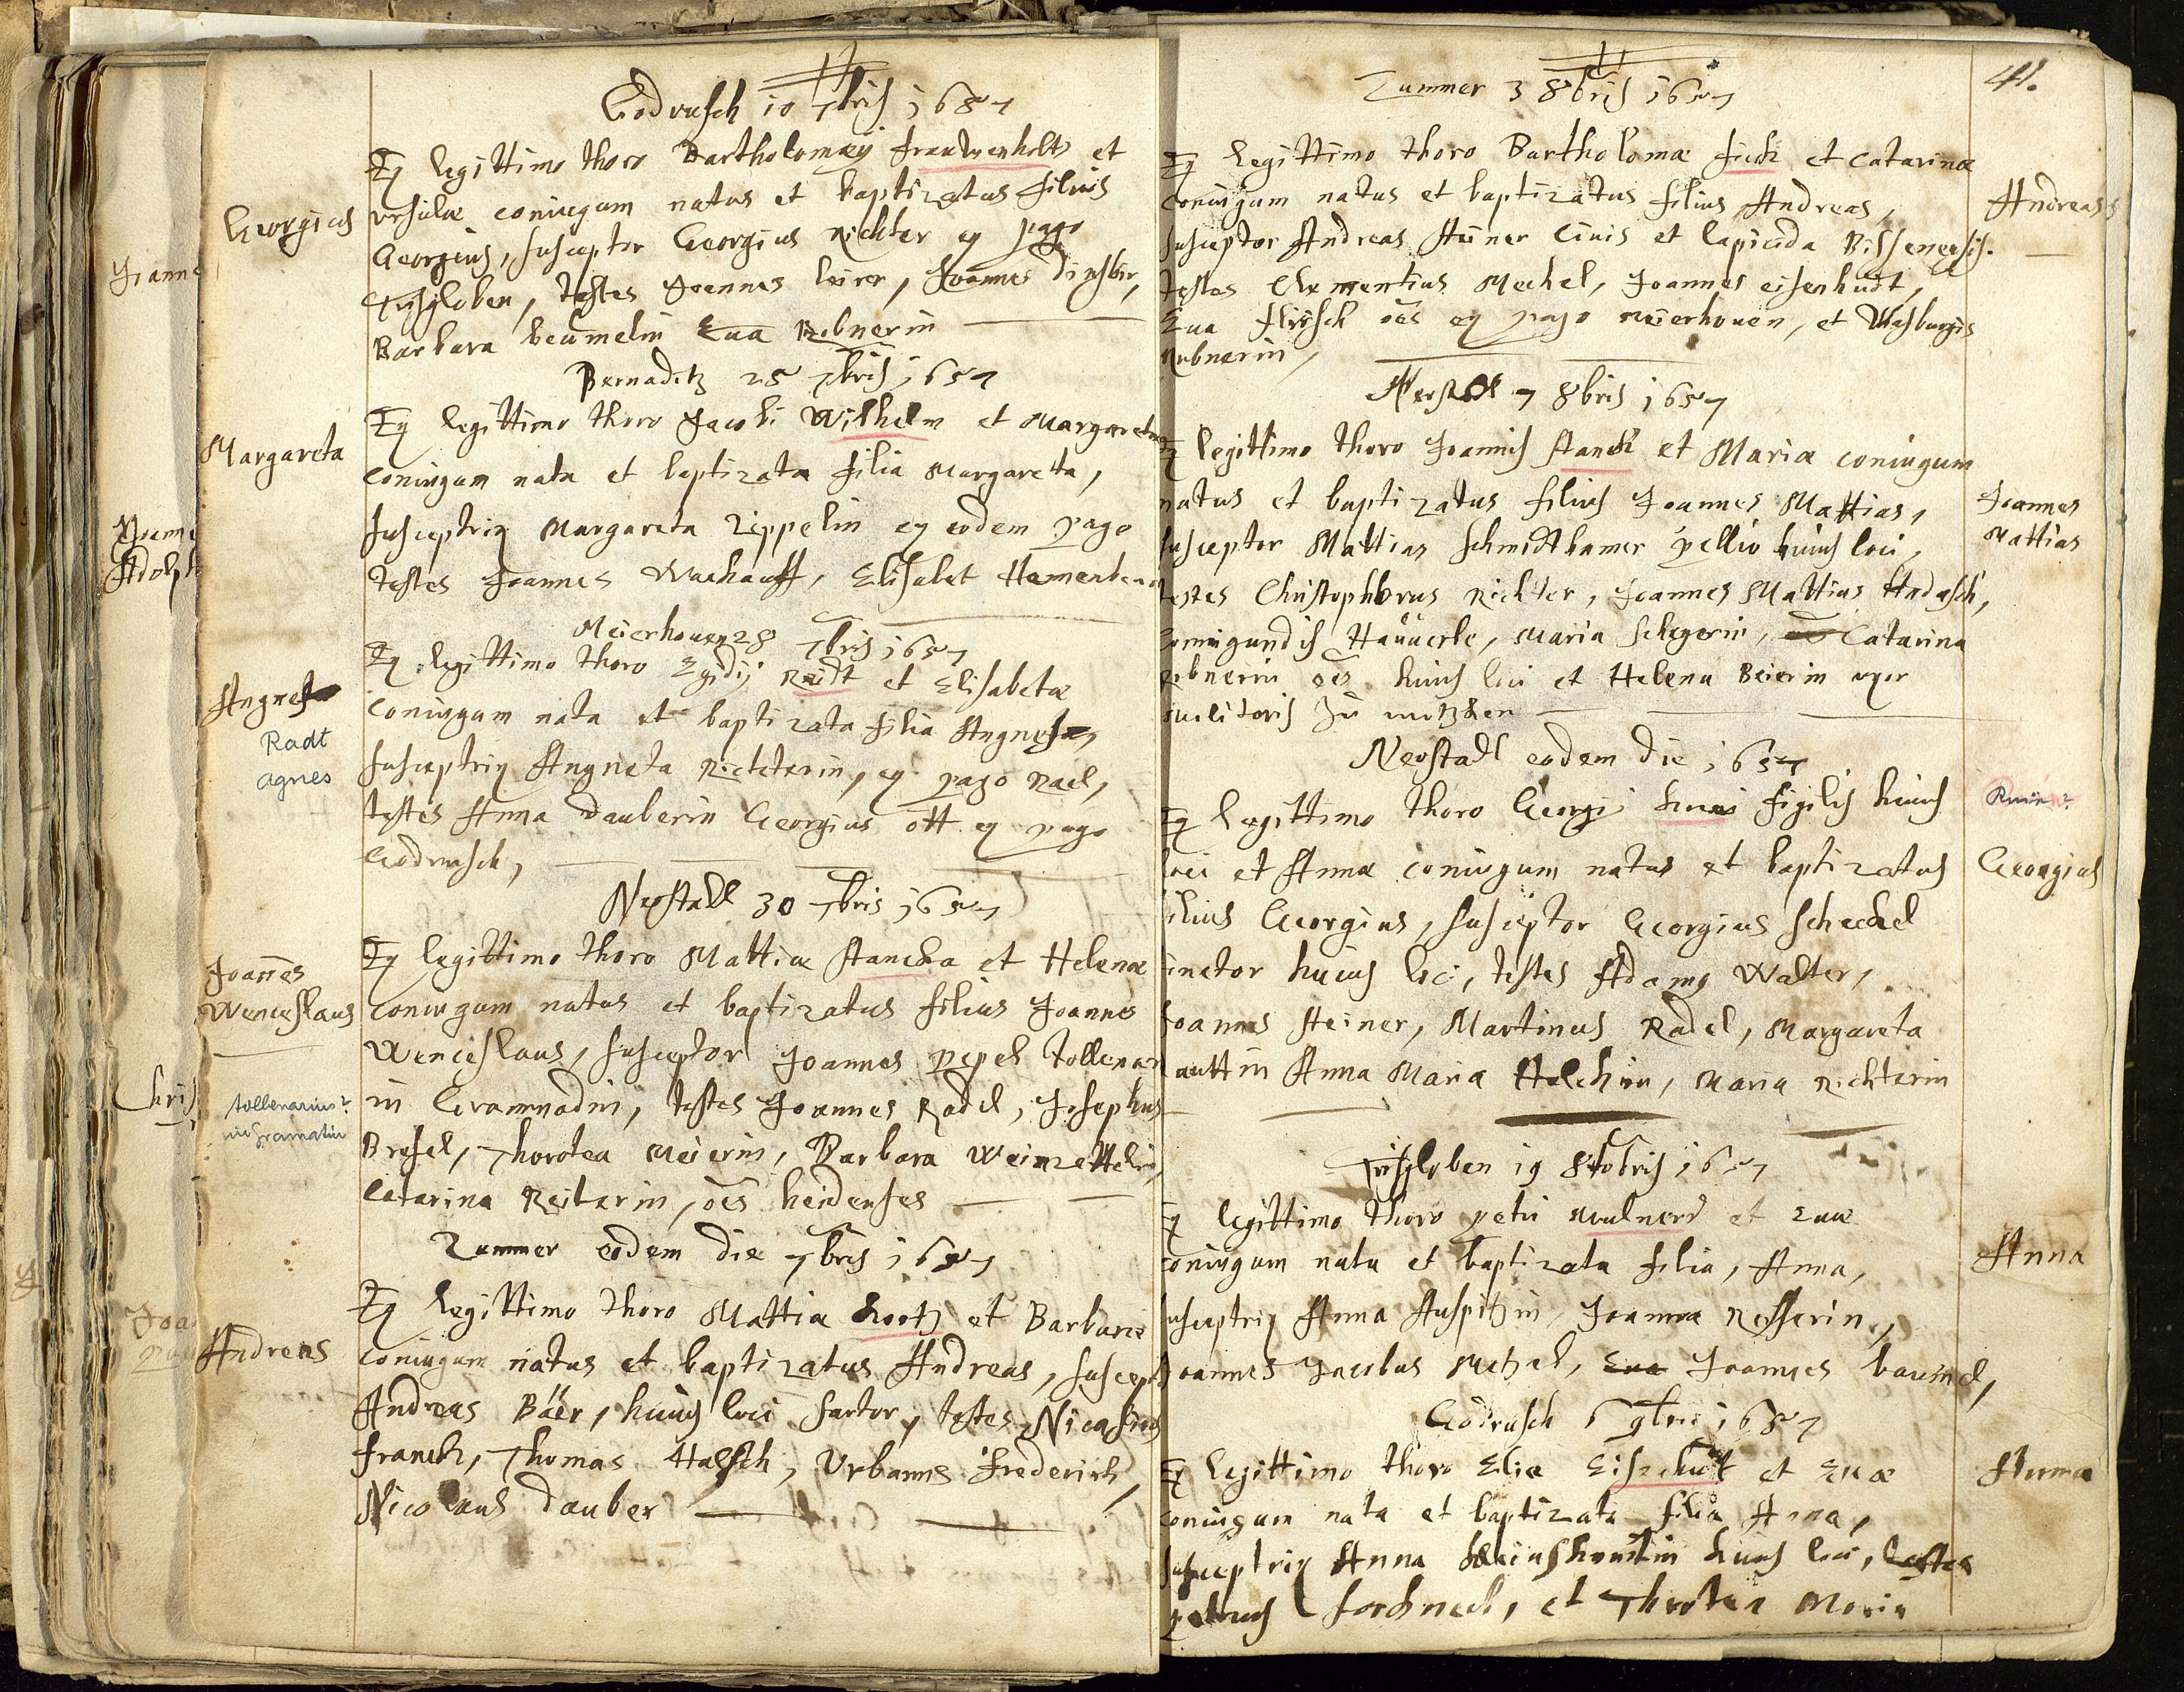 Godrusch 10 7bris 1657
Georgius
Ex legittimo thoro Bartholomæj frauwenholtz et
vrsulæ coniugum natus et baptizatus filius
Georgius, susceptor Georgius Richter ex pago
testes Joannes leirer, Joannes
Barbara beumelin Eua Rebnerin
Bernaditz 25 7bris 1657
Margareta
Ex legittimo thoro Jacobi Wilhelm et Margaretæ
coniugum nata et baptizata filia Margareta,
susceptrix Margareta Zippelin ex eodem pago
testes Joannes Wachauff, Elisabet
Meierhouen 28 7bris 1657
Angnes
Radt
agnes
Ex legittimo thoro Egidij Redt et Elisabetæ
coniugum nata et baptizata filia Angnes
susceptrix Angneta Richterin, ex pago Racl,
testes Anna Dauberin Georgius ott ex pago
Godrusch,
Neostadl 30 7bris 1657
Joannes
Wenceslaus
tollenarius?
in Gramatin
Ex legittimo thoro Mattiæ stancka et Helenæ
coniugum natus et baptizatus filius Joannes
Wenceslaus, susceptor Joannes pepel tollenar
in Gramnadin, testes Joannes Radel, Josephus
Bresel, Thorotea Meierin, Barbara Weinzettelin,
Catarina Reitarin, oes heidenses
Zummer eodem die 7bris 1657
Andreas
Ex legittimo thoro Mattiæ hootz et Barbaræ
coniugum natus et baptizatus Andreas, suscept
Andreas Bäer, huius loci sartor, testes Nicasius
franck, Thomas Halsch, Vrbanus frederich,
Nicolaus Dauber
41.
Zummer 3 8bris 1657
Andreas
Ex legittimo thoro Bartholomæ fick et Catarinæ
coniugum natus et baptizatus filius Andreas,
susceptor Andreas Stiner ciuis et lapicida Bissenensis.
testes Clementius Mechel, Joannes eisenhudt,
Eua flirsch oes ex pago Meierhouen, et Walburgis
Rebnerin,
Neostadl 7 8bris 1657
Joannes
Mattias
Ex legittimo thoro Joannis stanck et Mariæ coniugum
natus et baptizatus filius Joannes Mattias,
susceptor Mattias Schmidthamer pellio huius loci,
testes Christophorus Richter, Joannes Mattias Hadasch,
Connigundis Hauuerle, Maria schegerin, Catarina
Rebnerin oes huius loci et Helena Beierin vxor
molitoris zu
Neostadl eodem die 1657
Georgius
Ex legittimo thoro Georgi figilis huius
loci et Annæ coniugum natus et baptizatus
filius Georgius, susceptor Georgius scheckel
huius loci, testes Adamus Walter,
Joannes steiner, Martinus Radel, Margareta
Anna Maria Halchin, Maria Richterin
19 8tobris 1657
Anna
Ex legittimo thoro petri mulnerd et Euæ
coniugum nata et baptizata filia, Anna,
susceptrix Anna Auspitzin, Joanna Resserin,
Joannes Jacobus Metzel, Eua Joannes baumel,
Godrusch 6 9bris 1657
Anna
Ex legittimo thoro Eliæ Eisenhudt et Euæ
coniugum nata et baptizata filia Anna,
susceptrix Anna huius loci, testes
petrus et Throtea Maria